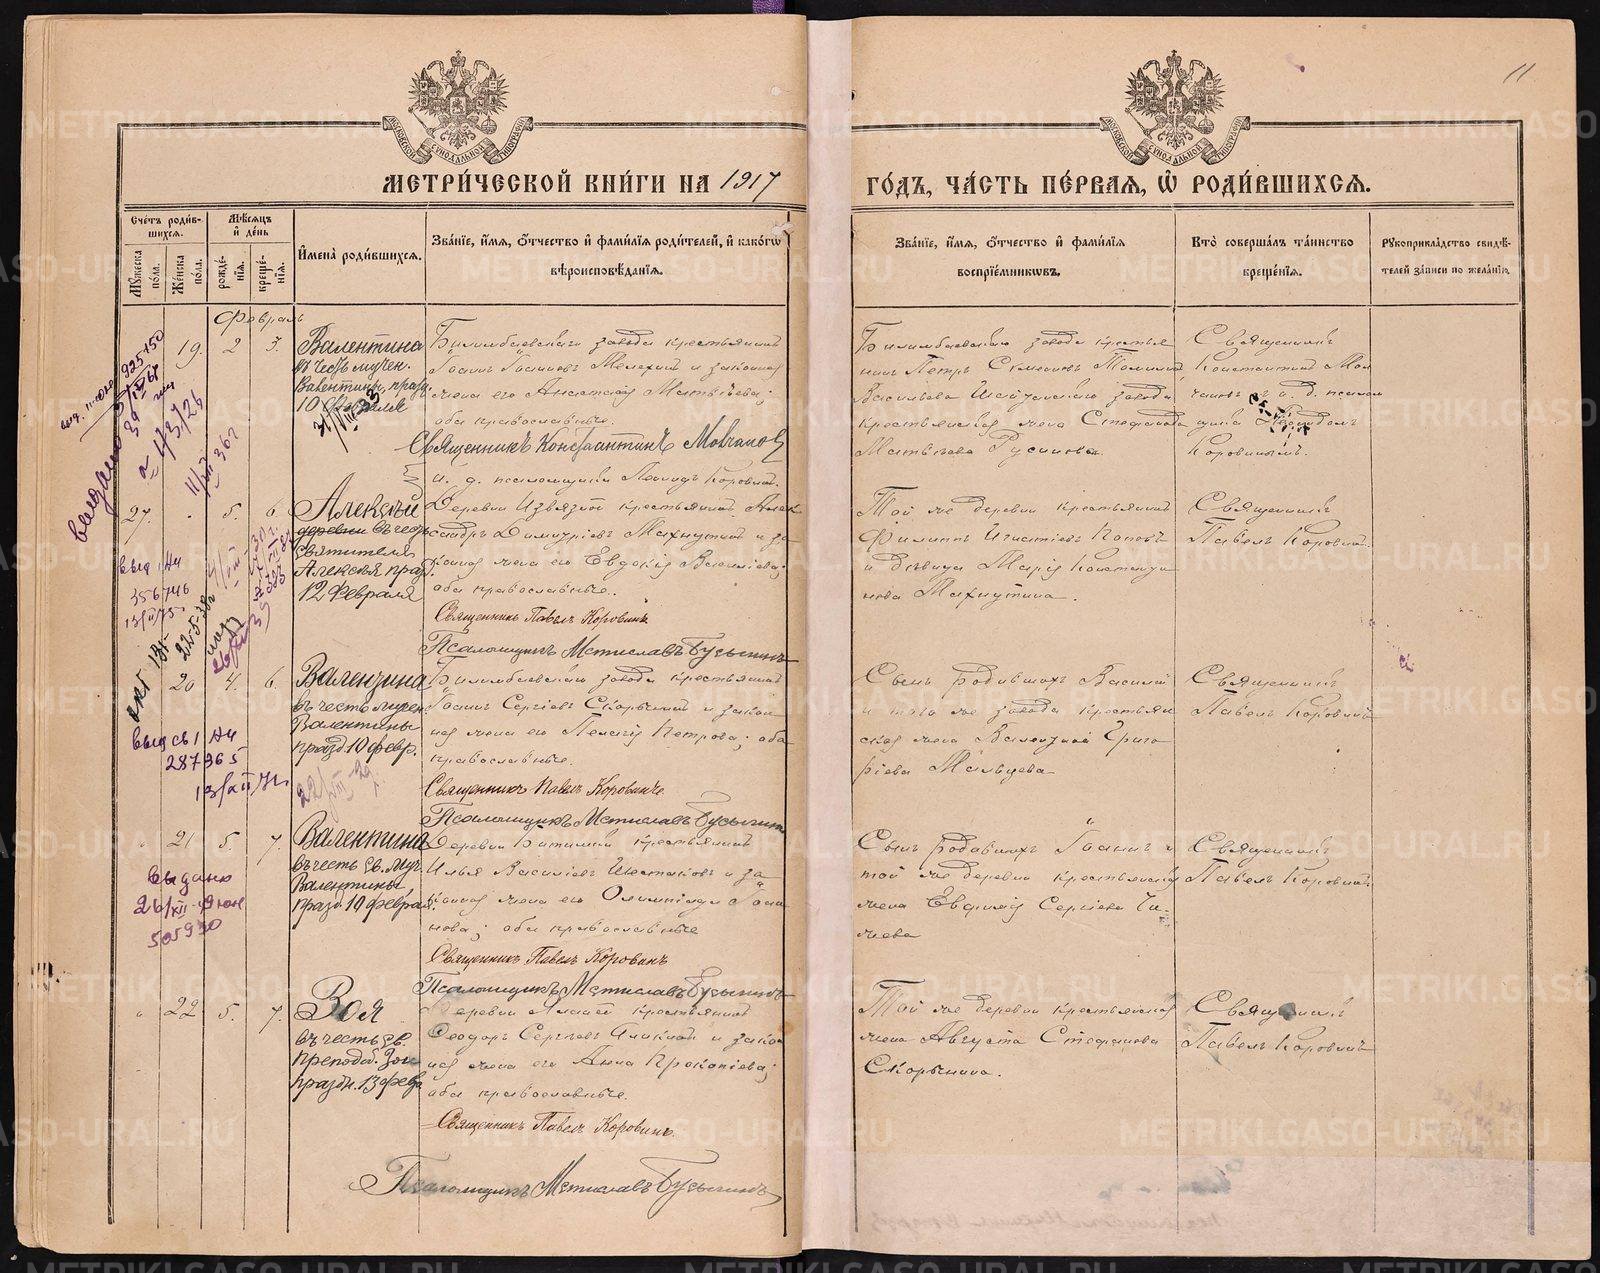 11
МЕТРИ́ЧЕСКОЙ КНИ́ГИ НА 1917
ГО́ДЪ, ЧА́СТЬ ПЕ́РВАЯ, Ѽ РОДИ́ВШИХСЯ.
Сче́тъ роди́в-
шихся.
Мꙋ́жеска по́ла.
Же́нска по́ла.
Мѣ́сяцъ и҆ де́нь
рожде́-
нїѧ.
креще́-
нїѧ.
И҆мена̀ роди́вшихся.
Зва́нїе, и҆́мя, ѻ҆́тчество и҆ фами́лїя роди́телей, и҆ како́гѡ
вѣроисповѣ́данїя.
Зва́нїе, и҆́мя, ѻ҆́тчество и҆ фами́лїя
воспрїе́мникѡвъ.
Кто̀ соверша́лъ та́инство
креще́нїя.
Рꙋкоприкла́дство свидѣ́-
телей за́писи по жела́нїю
Февраль
19. 2 3.
Валентина
въ честь мучен.
Валентины, празд.
10 февраля
Билимбаевскаго завода крестьянинъ
Іоаннъ Іоанновъ и законная
жена его Анастасія Матвѣева;
оба православные.
Священникъ Константинъ Молчановъ
и. д. псаломщика Леонидъ Коровинъ.
Билимбаевскаго завода крестья
нинъ Петръ Симеоновъ
Васильева Шайтанскаго завода
крестьянская жена Стефанида
Матвѣева Русинова.
Священникъ
Константинъ Мол
чановъ и и. д. псалом
щика Леонидъ
Коровинымъ.
27. 5. 6.
Алексѣй
деревни въ честь
Святителя
Алексѣя праз.
12 Февраля
Деревни Извязной крестьянинъ Алек
сандръ Димитріевъ Махнутинъ и за
конная жена его Евдокія Васильева;
оба православные.
Священникъ Павелъ Коровинъ
Псаломщикъ Мстиславъ Бусыгинъ
Той же деревни крестьянинъ
Филиппъ Игнатіевъ Поповъ
и дѣвица Марія Константи
нова Махнутина.
Священникъ
Павелъ Коровинъ
20 4. 6.
Валентина
въ честь мучен.
Валентины
празд. 10 февр.
Билимбаевскаго завода крестьянинъ
Іоаннъ Сергіевъ Скорынинъ и закон
ная жена его Пелагія Петрова; оба
православные.
Священникъ Павелъ Коровинъ.
Псаломщикъ Мстиславъ Бусыгинъ
Сынъ родившихъ Василій
и того же завода крестьян
ская жена Валентина Григо
ріева Мальцева
Священникъ
Павелъ Коровинъ
21 5. 7.
Валентина
въ честь св. муч.
Валентины
празд. 10 феврал.
Деревни Битимки крестьянинъ
Илья Василіевъ Шестаковъ и за
конная жена его Олимпіада Іоан
нова; оба православные
Священникъ Павелъ Коровинъ
Псаломщикъ Мстиславъ Бусыгинъ
Сынъ родившихъ Іоаннъ и
той же деревни крестьянская
жена Евфимія Сергіева
Священникъ
Павелъ Коровинъ
22 5. 7.
Зоя
въ честь св.
преподоб. Зои
праздн. 13 февр.
Деревни крестьянинъ
Ѳеодоръ Сергіевъ и закон
ная жена его Анна Прокопіева;
оба православные.
Священникъ Павелъ Коровинъ.
Псаломщикъ Мстиславъ Бусыгинъ
Той же деревни крестьянская
жена Августа Стефанова
Скорынина.
Священникъ
Павелъ Коровинъ
выдано
356746
287965
выдано
505930
METRIKI.GASO-URAL.RU